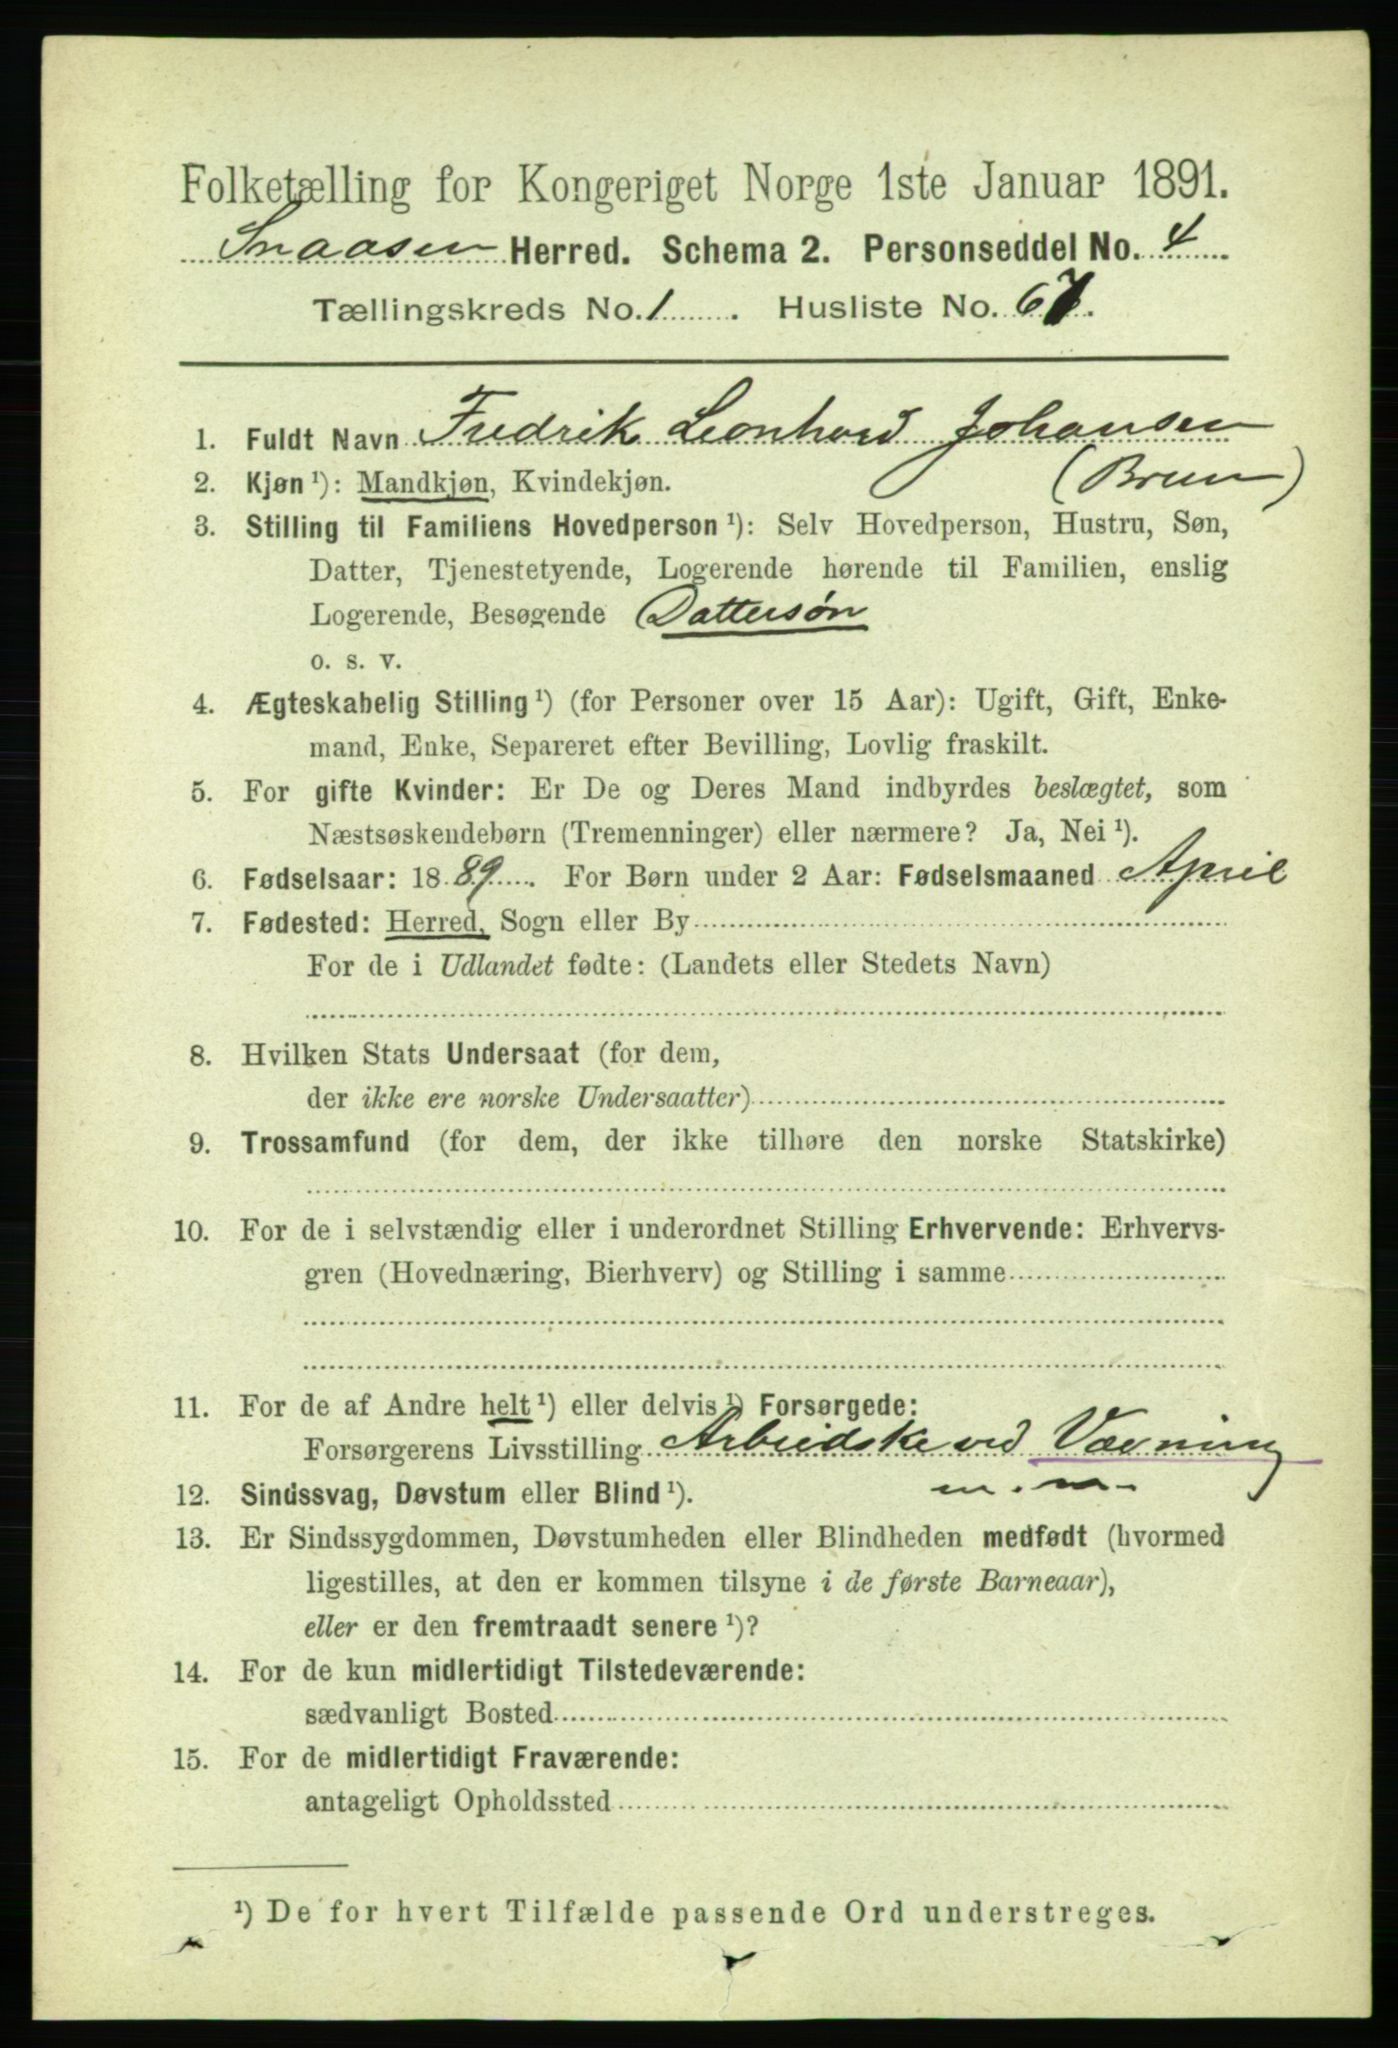 Folketælling for Kongeriget Norge 1ste Januar 1891.
Snaasen Herred. Schema 2. Personseddel No. 4
Tællingskreds No. 1. Husliste No. 67.
1. Fuldt Navn Fredrik Leonhard Johansen
(Brun)
2. Kjøn ¹): Mandkjøn, Kvindekjøn.
3. Stilling til Familiens Hovedperson ¹): Selv Hovedperson, Hustru, Søn,
Datter, Tjenestetyende, Logerende hørende til Familien, enslig
Logerende, Besøgende Dattersøn
o. s. v.
4. Ægteskabelig Stilling ¹) (for Personer over 15 Aar): Ugift, Gift, Enke-
mand, Enke, Separeret efter Bevilling, Lovlig fraskilt.
5. For gifte Kvinder: Er De og Deres Mand indbyrdes beslægtet, som
Næstsøskendebørn (Tremenninger) eller nærmere? Ja, Nei ¹).
6. Fødselsaar: 1889. For Børn under 2 Aar: Fødselsmaaned April
7. Fødested: Herred, Sogn eller By
For de i Udlandet fødte: (Landets eller Stedets Navn)
8. Hvilken Stats Undersaat (for dem,
der ikke ere norske Undersaatter)
9. Trossamfund (for dem, der ikke tilhøre den norske Statskirke)
10. For de i selvstændig eller i underordnet Stilling Erhvervende: Erhvervs-
gren (Hovednæring, Bierhverv) og Stilling i samme
11. For de af Andre helt ¹) eller delvis ¹) Forsørgede:
Forsørgerens Livsstilling Arbeidske ved Vævning
m.m.
12. Sindssvag, Døvstum eller Blind ¹).
13. Er Sindssygdommen, Døvstumheden eller Blindheden medfødt (hvormed
ligestilles, at den er kommen tilsyne i de første Barneaar),
eller er den fremtraadt senere ¹)?
14. For de kun midlertidigt Tilstedeværende:
sædvanligt Bosted
15. For de midlertidigt Fraværende:
antageligt Opholdssted
¹) De for hvert Tilfælde passende Ord understreges.